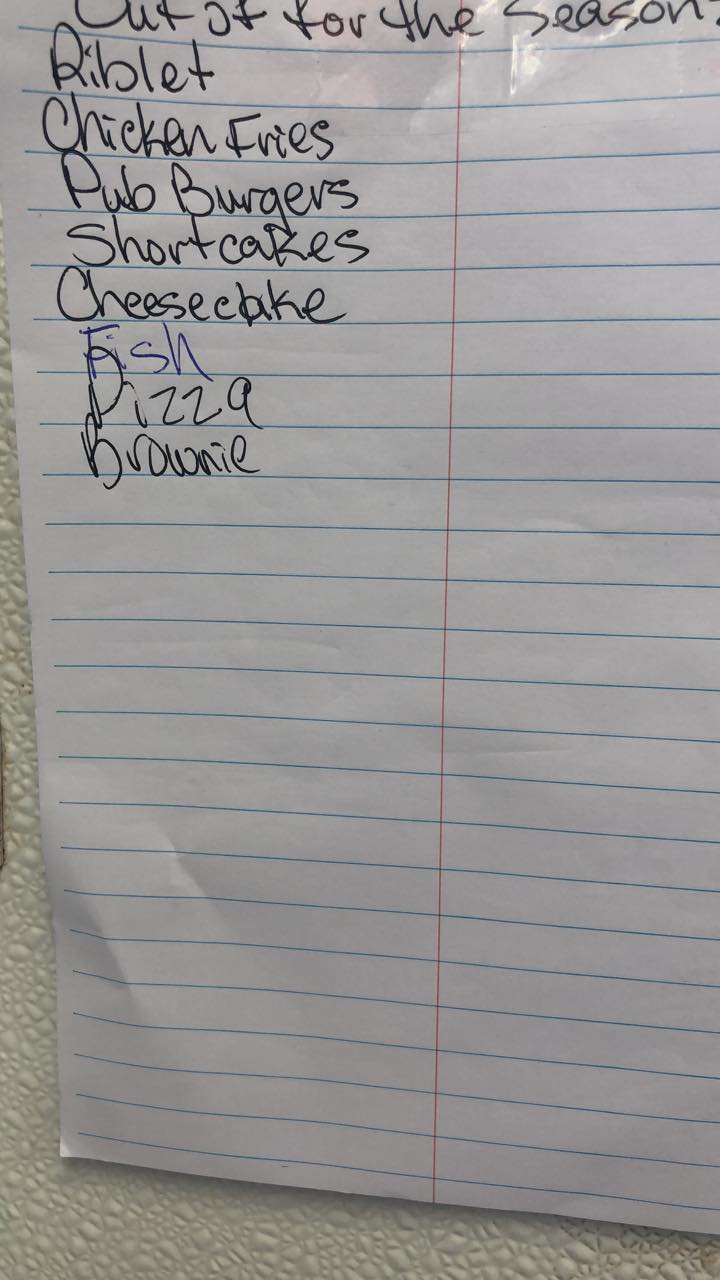 Out of for the Season:
Riblet
Chicken Fries
Pub Burgers
Shortcakes
Cheesecake
Fish
Pizza
Brownie